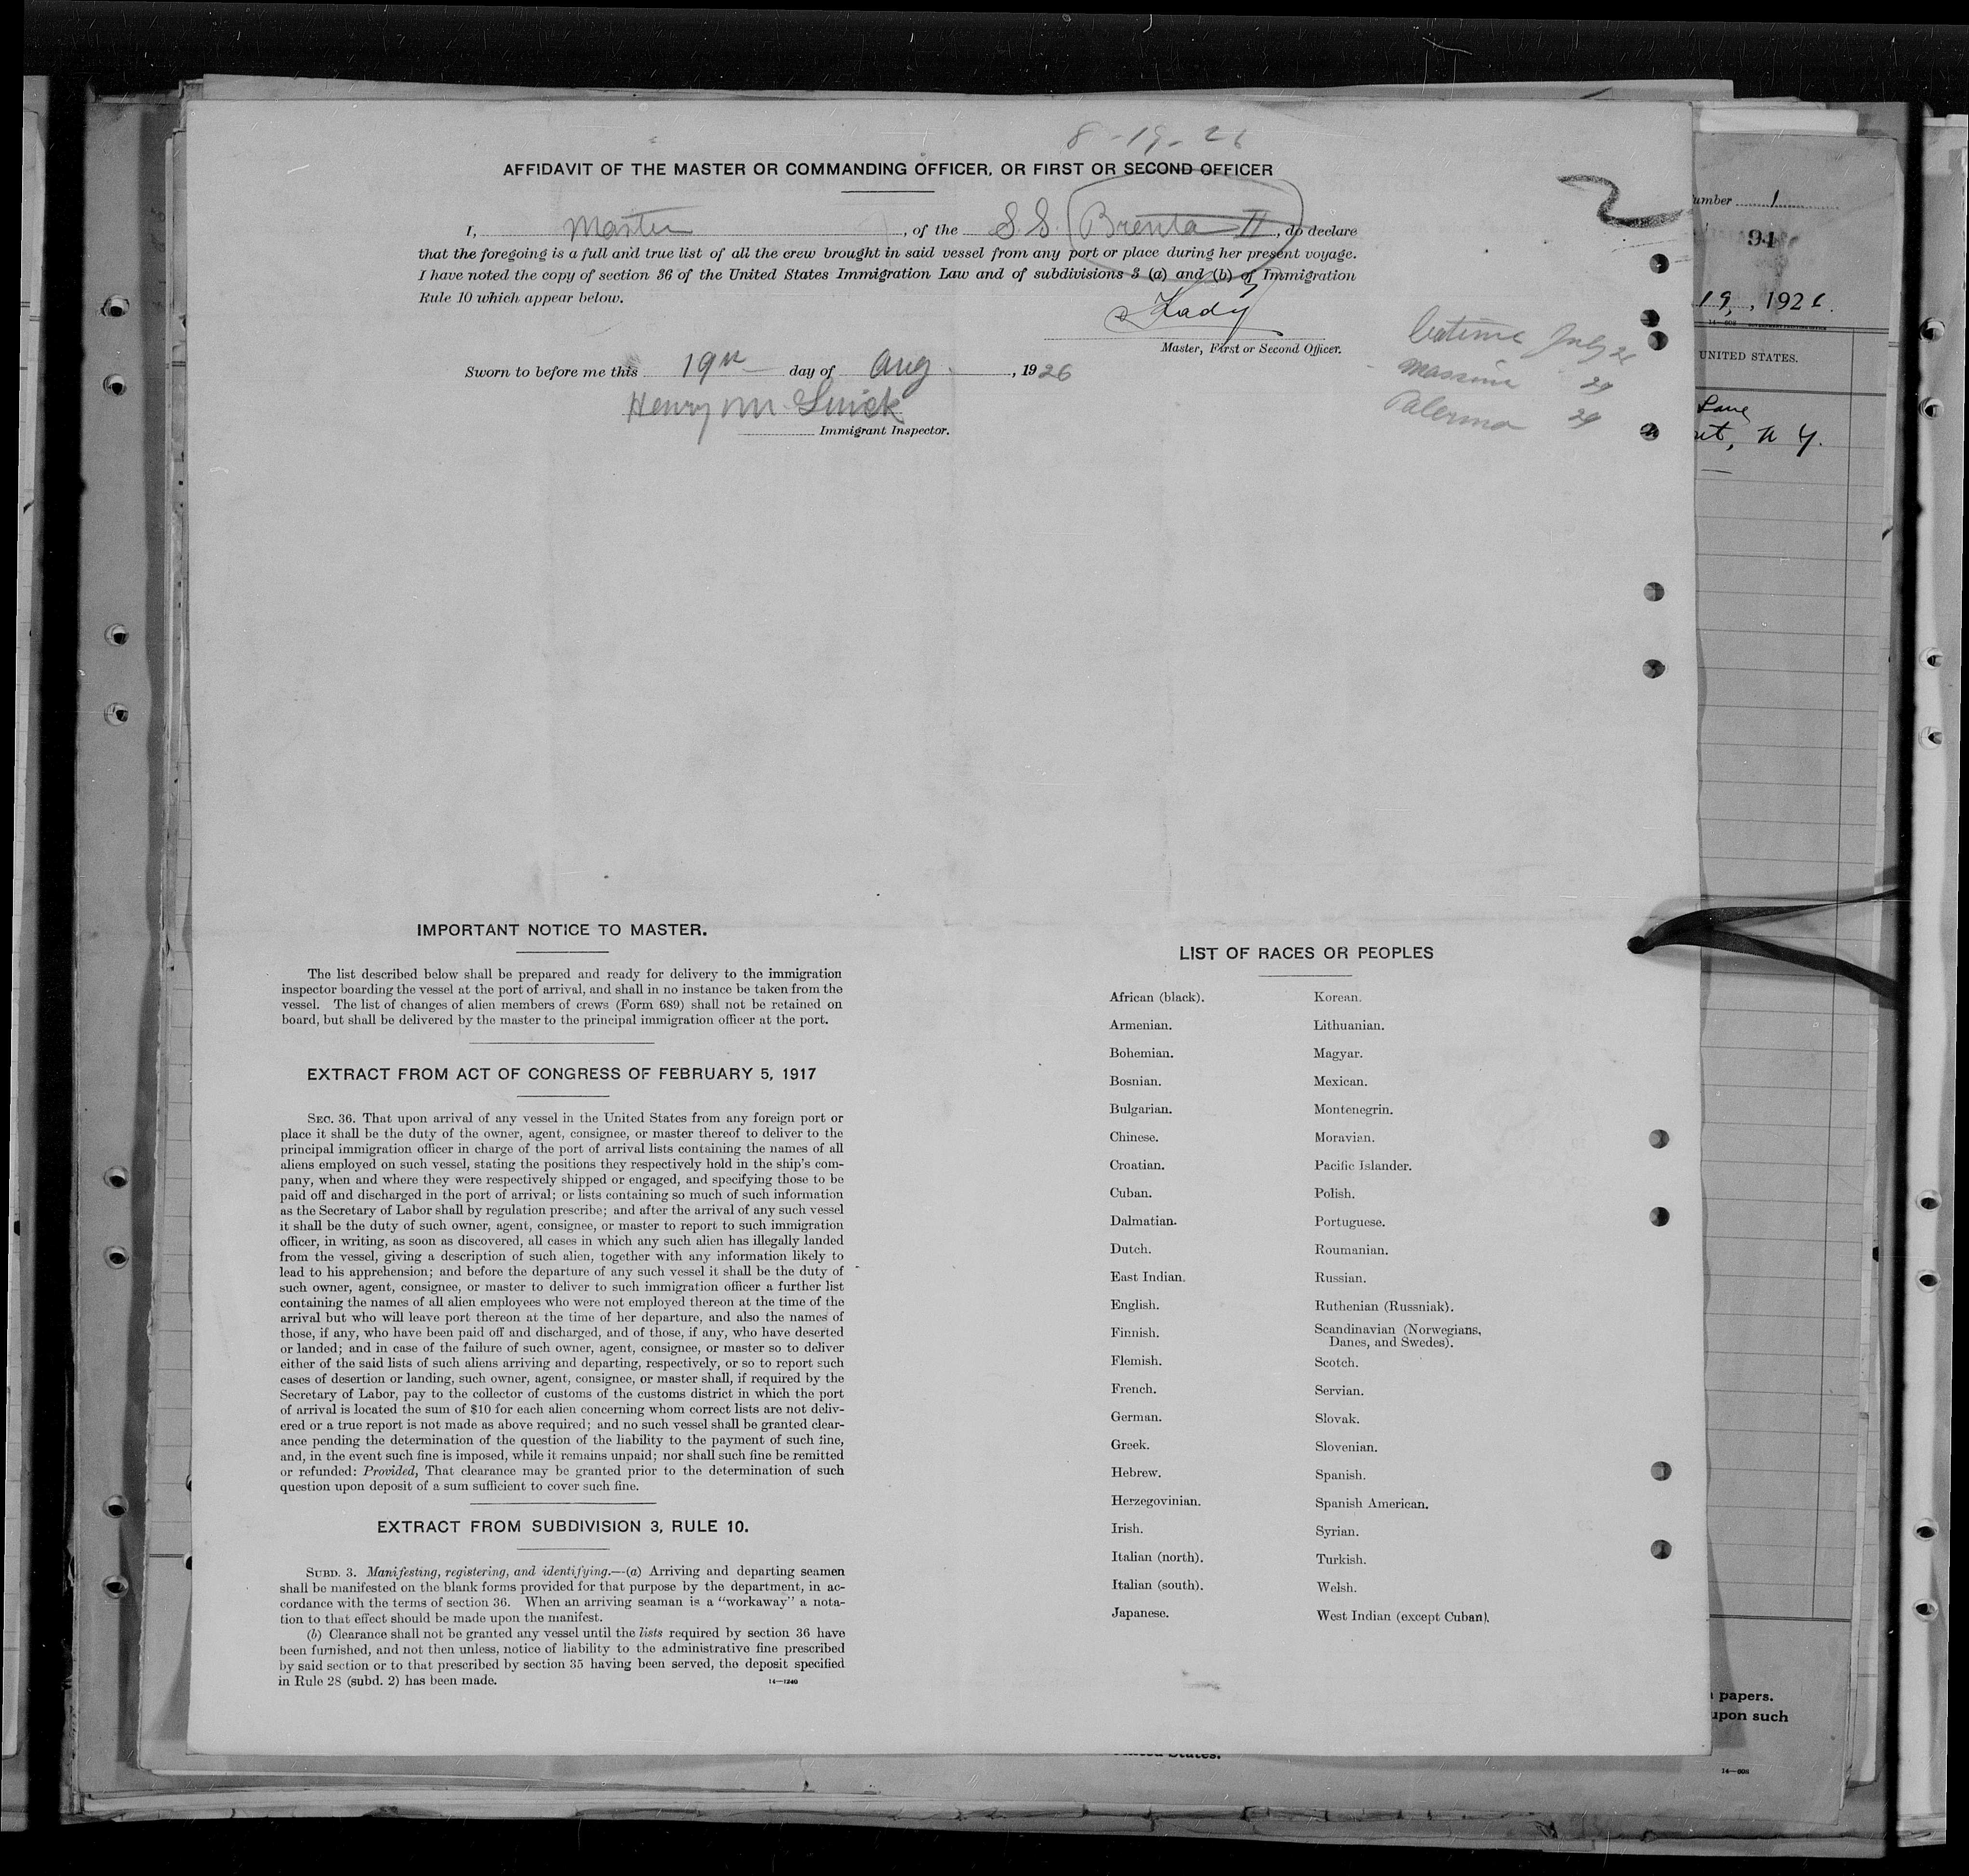 8-19-26
AFFIDAVIT OF THE MASTER OR COMMANDING OFFICER, OR FIRST OR SECOND OFFICER
I, Master, of the S.S. Brenta II, do declare
that the foregoing is a full and true list of all the crew brought in said vessel from any port or place during her present voyage.
I have noted the copy of section 36 of the United States Immigration Law and of subdivisions 3 (a) and (b) of Immigration
Rule 10 which appear below.
Master, First or Second Officer.
Sworn to before me this 19th day of Aug., 1926
Henry M.
Immigrant Inspector.
July
29
Palermo 29
umber 1
94
19, 1926.
14-608
UNITED STATES.
Lane
N Y.
IMPORTANT NOTICE TO MASTER.
The list described below shall be prepared and ready for delivery to the immigration
inspector boarding the vessel at the port of arrival, and shall in no instance be taken from the
vessel. The list of changes of alien members of crews (Form 689) shall not be retained on
board, but shall be delivered by the master to the principal immigration officer at the port.
EXTRACT FROM ACT OF CONGRESS OF FEBRUARY 5, 1917
SEC. 36. That upon arrival of any vessel in the United States from any foreign port or
place it shall be the duty of the owner, agent, consignee, or master thereof to deliver to the
principal immigration officer in charge of the port of arrival lists containing the names of all
aliens employed on such vessel, stating the positions they respectively hold in the ship's com-
pany, when and where they were respectively shipped or engaged, and specifying those to be
paid off and discharged in the port of arrival; or lists containing so much of such information
as the Secretary of Labor shall by regulation prescribe; and after the arrival of any such vessel
it shall be the duty of such owner, agent, consignee, or master to report to such immigration
officer, in writing, as soon as discovered, all cases in which any such alien has illegally landed
from the vessel, giving a description of such alien, together with any information likely to
lead to his apprehension; and before the departure of any such vessel it shall be the duty of
such owner, agent, consignee, or master to deliver to such immigration officer a further list
containing the names of all alien employees who were not employed thereon at the time of the
arrival but who will leave port thereon at the time of her departure, and also the names of
those, if any, who have been paid off and discharged, and of those, if any, who have deserted
or landed; and in case of the failure of such owner, agent, consignee, or master so to deliver
either of the said lists of such aliens arriving and departing, respectively, or so to report such
cases of desertion or landing, such owner, agent, consignee, or master shall, if required by the
Secretary of Labor, pay to the collector of customs of the customs district in which the port
of arrival is located the sum of $10 for each alien concerning whom correct lists are not deliv-
ered or a true report is not made as above required; and no such vessel shall be granted clear-
ance pending the determination of the question of the liability to the payment of such fine,
and, in the event such fine is imposed, while it remains unpaid; nor shall such fine be remitted
or refunded: Provided, That clearance may be granted prior to the determination of such
question upon deposit of a sum sufficient to cover such fine.
EXTRACT FROM SUBDIVISION 3, RULE 10.
SUBD. 3. Manifesting, registering, and identifying.—(a) Arriving and departing seamen
shall be manifested on the blank forms provided for that purpose by the department, in ac-
cordance with the terms of section 36. When an arriving seaman is a "workaway" a nota-
tion to that effect should be made upon the manifest.
(b) Clearance shall not be granted any vessel until the lists required by section 36 have
been furnished, and not then unless, notice of liability to the administrative fine prescribed
by said section or to that prescribed by section 35 having been served, the deposit specified
in Rule 28 (subd. 2) has been made.
14—1240
LIST OF RACES OR PEOPLES
African (black).
Armenian.
Bohemian.
Bosnian.
Bulgarian.
Chinese.
Croatian.
Cuban.
Dalmatian.
Dutch.
East Indian.
English.
Finnish.
Flemish.
French.
German.
Greek.
Hebrew.
Herzegovinian.
Irish.
Italian (north).
Italian (south).
Japanese.
Korean.
Lithuanian.
Magyar.
Mexican.
Montenegrin.
Moravian.
Pacific Islander.
Polish.
Portuguese.
Roumanian.
Russian.
Ruthenian (Russniak).
Scandinavian (Norwegians,
Danes, and Swedes).
Scotch.
Servian.
Slovak.
Slovenian.
Spanish.
Spanish American.
Syrian.
Turkish.
Welsh.
West Indian (except Cuban).
papers.
upon such
States.
14—608